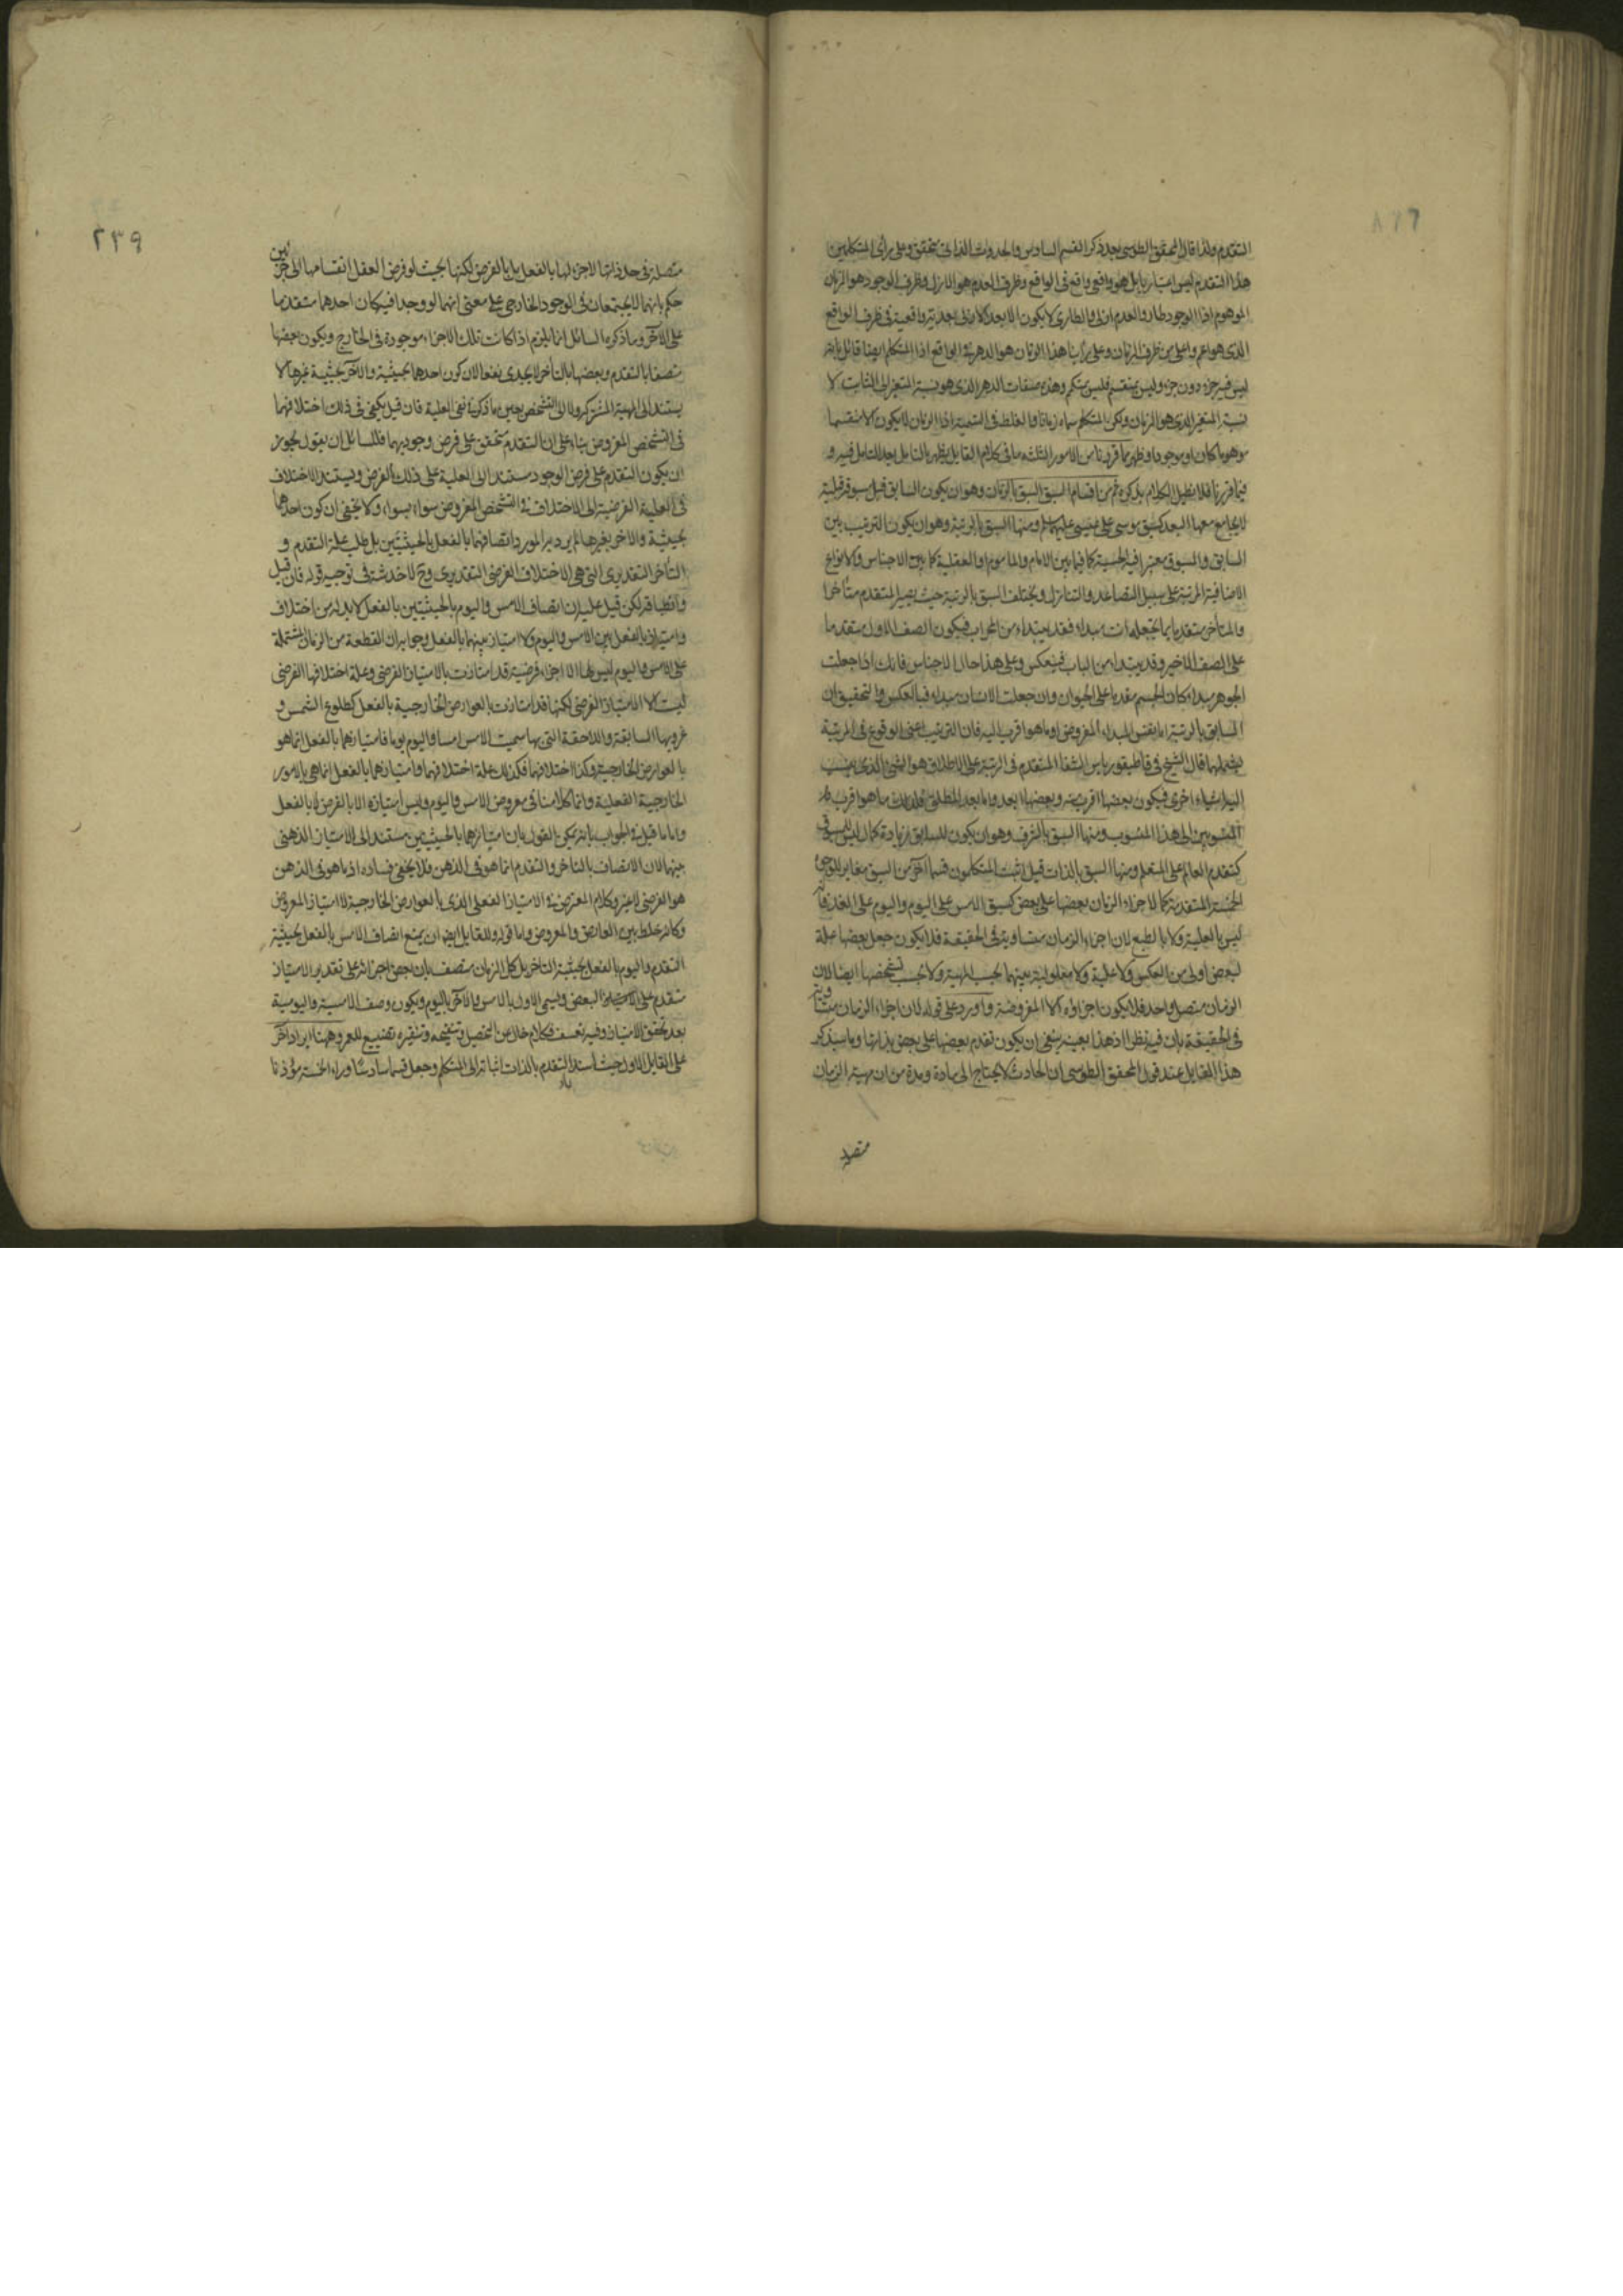 التقدم ولذا قال المحقق الطوسى بعد ذكر القسم السادس والحدوث الذاتى متحقق وعلى رأى المتكلمين
هذا التقدم ليس اعتباريا بل هو واقعى واقع فى الواقع وظرف العدم هو الازل وظرف الوجود هو الزمان
الموهوم اذا الوجود طار والعدم ازلى والطارى لا يكون الا بعد كالازلى بعدية واقعية فى ظرف الواقع
الذى هو اعم واعلى من ظرف الزمان وعلى رأينا هذا الزمان هو الدهر فى الواقع اذا المتكلم ايضا قائل بانه
ليس فيه جزء دون جزء وليس بمنقسم فليس بكم وهذه صفات الدهر الذى هو نسبة المتغير الى الثابت لا
نسبة المتغير الذى هو الزمان ولكن المتكلم سماه زمانا والغلط فى التسمية اذا الزمان لا يكون الا منقسما
موهوما كان او موجودا وظهر بما قررناه من الامور الثلثة ما فى كلام القايل يظهر بالتامل بعد التامل فيه و
فيما قررنا فلا نطيل الكلام بذكره ثم من اقسام السبق السبق بالزمان وهو ان يكون السابق قبل مسبوقه قبلية
لا يجامع معها البعد كسبق موسى على عيسى عليهما السلم ومنها السبق بالرتبة وهو ان يكون الترتيب بين
السابق والمسبوق معتبرا فيه الحسية كما فيما بين الامام والماموم او العقلية كما بين الاجناس والانواع
الاضافية المرتبة على سبيل التصاعد والتنازل ويختلف السبق بالرتبة حيث يصير المتقدم متأخرا
والمتأخر متقدما بما يجعله انت مبداء فقد يبتداء من المحراب فيكون الصف الاول متقدما
على الصف الاخير وقد يبتداء من الباب فينعكس وعلى هذا حال الاجناس فانك اذا جعلت
الجوهر مبداء كان الجسم مقدما على الحيوان وان جعلت الانسان مبداء فبالعكس والتحقيق ان
السابق بالرتبة اما نفس المبداء المفروض او ما هو اقرب اليه فان الترتيب اعنى الوقوع فى المرتبة
يشملهما قال الشيخ فى قاطيغورياس الشفا المتقدم فى الرتبة على الاطلاق هو الشئ الذى ينسب
اليه اشياء اخرى فيكون بعضها اقرب منه وبعضها ابعد واما بعد المطلق فذلك ما هو اقرب
المنسوبين الى هذا المنسوب ومنها السبق بالشرف وهو ان يكون للسابق زيادة كمال ليس للمسبوق
كتقدم العالم على المتعلم ومنها السبق بالذات قيل اثبت المتكلمون قسما آخر من السبق مغاير للوجوه
الخمسة المتقدمة كما لاجزاء الزمان بعضها على بعض كسبق الامس على اليوم واليوم على الغد فانه
ليس بالعلية ولا بالطبع لان اجزاء الزمان متساوية فى الحقيقة فلا يكون جعل بعضها علة
لبعض اولى من العكس ولا علية ولا معلولية بينهما بحسب المهية ولا بحسب تشخصها ايضا لان
الزمان متصل واحد فلا يكون اجزاؤه الا المفروضة واورد على قوله لان اجزاء الزمان متساوية
فى الحقيقة بان فيه نظرا اذ هذا بعينه ينفى ان يكون تقدم بعضها على بعض بذاتها وما سيذكر
هذا القايل عند قول المحقق الطوسى ان الحادث لا يحتاج الى مادة ومدة من ان مهية الزمان
متصلة
٢٣٩
متصلة فى حد ذاتها لاجزء لها بالفعل بل بالفرض لكنها بحيث لو فرض العقل انقسامها الى جزئين
حكم بانهما لا يجتمعان فى الوجود الخارجى على معنى انهما لو وجدا فيه كان احدهما متقدما
على الآخر وما ذكره السائل انما يلزم اذا كانت تلك الاجزاء موجودة فى الخارج ويكون بعضها
متصفا بالتقدم وبعضها بالتأخر لا يجدى نفعا لان كون احدهما بحيثية والآخر بحيثية غيرها لا
يستند الى المهية المشتركة ولا الى التشخص بعين ما ذكره فى نفى العلية فان قيل يكفى فى ذلك اختلافهما
فى التشخص المفروض بناء على ان التقدم متحقق على فرض وجوديهما فللسائل ان يقول يجوز
ان يكون التقدم على فرض الوجود مستندا الى العلية على ذلك الفرض ويستند الاختلاف
فى العلية الفرضية الى الاختلاف فى التشخص المفروض سواء بسواء ولا يخفى ان كون احدهما
بحيثية والاخر بغيرها لم يرد به المورد اتصافهما بالفعل بالحيثيتين بل طلب علة التقدم و
التأخر التقديرى التى هى الاختلاف الفرضى التقديرى وح لا خدشة فى توجيه قوله فان قيل
وانطباقه لكن قيل عليه ان اتصاف الامس واليوم بالحيثيتين بالفعل لا بد له من اختلاف
وامتياز بالفعل بين الامس واليوم ولا امتياز بينهما بالفعل وجوابه ان القطعة من الزمان المشتملة
على الامس واليوم ليس لها الا اجزاء فرضية قد امتازت بالامتياز الفرضى وعلة اختلافها الفرضى
ليست الا الامتياز الفرضى لكنها قد امتازت بالعوارض الخارجية بالفعل كطلوع الشمس و
غروبها السابقة واللاحقة التى بها سميت الامس امسا واليوم يوما فامتيازهما بالفعل انما هو
بالعوارض الخارجية وكذا اختلافهما فكذلك علة اختلافهما وامتيازهما بالفعل انما هى بالامور
الخارجية الفعلية وانما كلامنا فى معروض الامس واليوم وليس امتيازه الا بالفرض لا بالفعل
واما ما قيل فى الجواب بانه يمكن القول بان امتيازهما بالحيثيتين مستند الى الامتياز الذهنى
بينهما لان الاتصاف بالتاخر والتقدم انما هو فى الذهن فلا يخفى فساده اذ ما هو فى الذهن
هو الفرضى لا غير وكلام المعترض فى الامتياز الفعلى الذى بالعوارض الخارجية لا امتياز المعروض
وكانه خلط بين العارض والمعروض واما قوله وللقايل ايضا ان يمنع اتصاف الامس بالفعل بحيثية
التقدم واليوم بالفعل بحيثية التاخر بل كل الزمان متصف بان بعض اجزائه على تقدير الامتياز
متقدم على البعض ويسمى الاول بالامس والآخر باليوم ويكون وصف الامسية واليومية
بعد تحقق الامتياز وفيه تعسف فكلام خال عن التحصيل وتنقيحه وتنقيره تضييع للعمر وههنا ايراد آخر
على القايل الاول حيث اسند التقدم بالذات اثباته الى المتكلم وجعل قسما سادسا وراء الخمسة مؤذنا